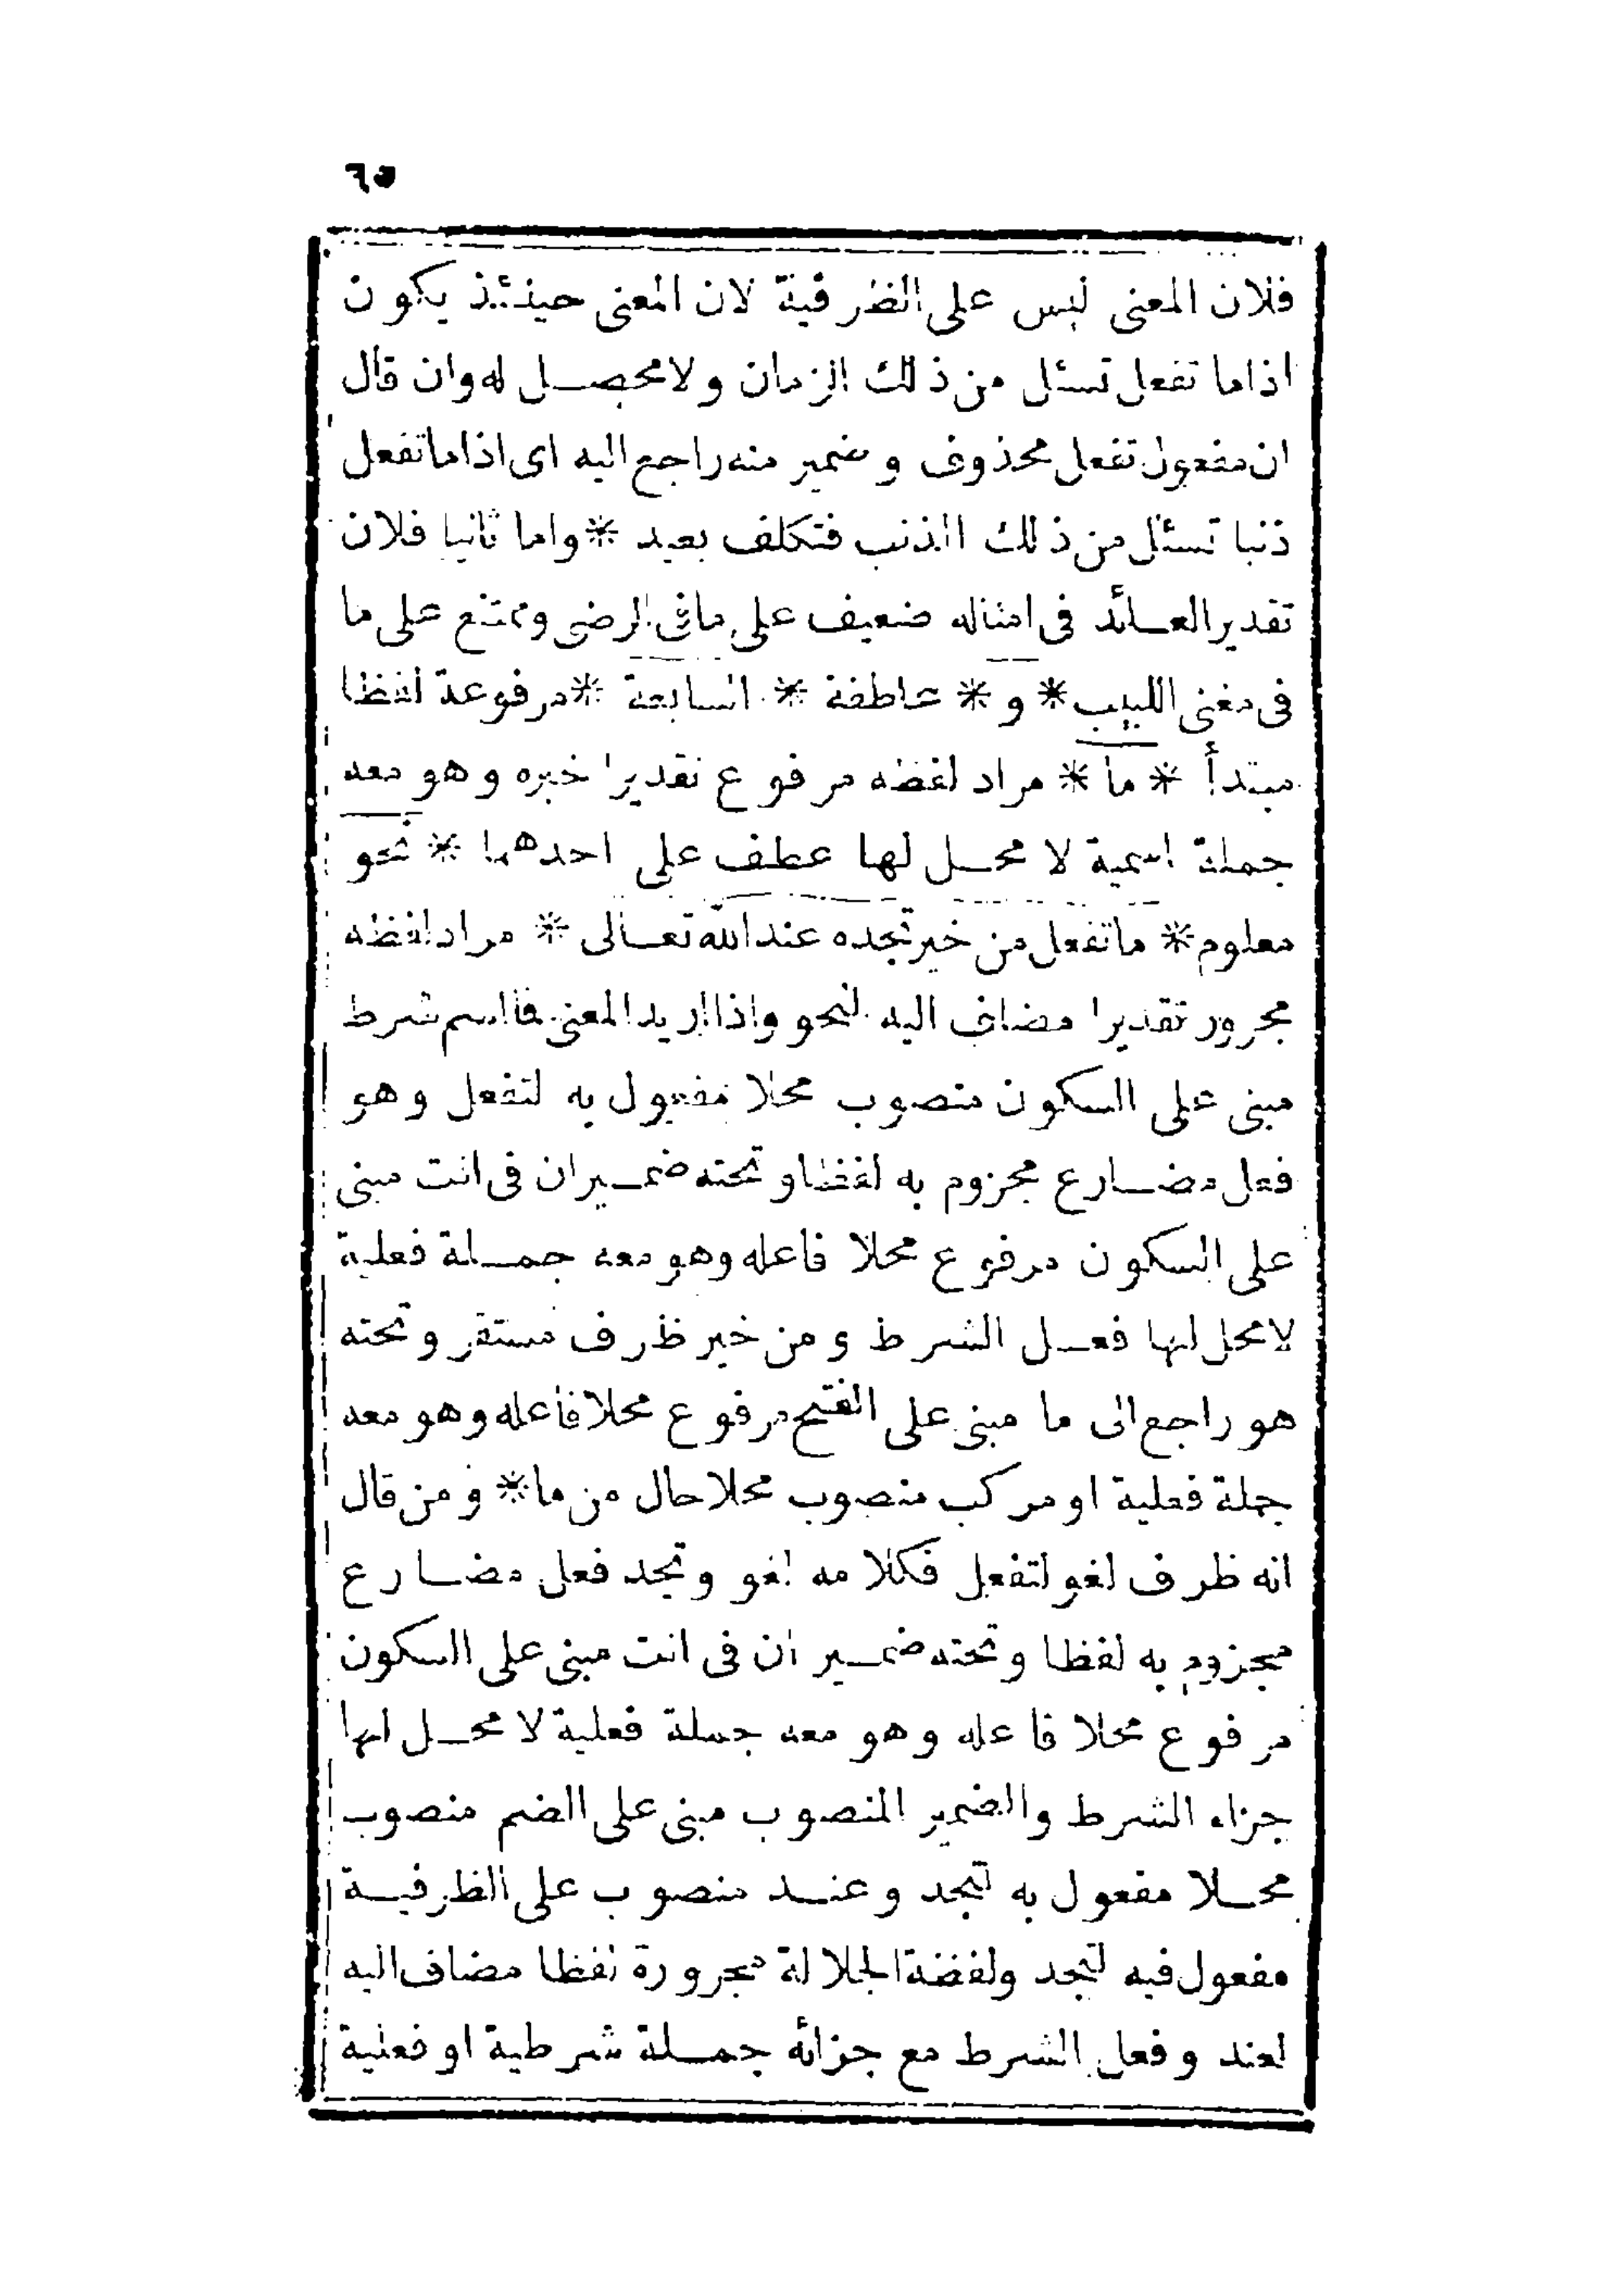 ٦٥
فلان المعنى ليس على الظرفية لان المعنى حينئذ يكون
اذاما تفعل تسئل من ذلك الزمان ولامحصل له وان قال
ان مفعول تفعل محذوف وضمير منه راجع اليه اى اذاماتفعل
ذنبا تسئل من ذلك الذنب فتكلف بعيد * واما ثانيا فلان
تقدير العائد فى امثاله ضعيف على مافى الرضى وممتنع على ما
فى مغنى اللبيب * و * عاطفة * السابعة * مرفوعة لفظا
مبتدأ * ما * مراد لفظه مرفوع تقديرا خبره وهو معه
جملة اسمية لا محل لها عطف على احدهما * نحو
معلوم * ماتفعل من خير تجده عند الله تعالى * مراد لفظه
مجرور تقديرا مضاف اليه لنحو واذا اريد المعنى فا اسم شرط
مبنى على السكون منصوب محلا مفعول به لتفعل وهو
فعل مضارع مجزوم به لفظا وتحته ضمير ان فى انت مبنى
على السكون مرفوع محلا فاعله وهو معه جملة فعلية
لامحل لها فعل الشرط و من خير ظرف مستقر وتحته
هو راجع الى ما مبنى على الفتح مرفوع محلا فاعله وهو معه
جلة فعلية او مركب منصوب محلا حال من ما * ومن قال
انه ظرف لغو لتفعل فكلامه لغو وتجد فعل مضارع
مجزوم به لفظا وتحته ضمير ان فى انت مبنى على السكون
مرفوع محلا فاعله وهو معه جملة فعلية لا محل لها
جزاء الشرط والضمير المنصوب مبنى على الضم منصوب
محلا مفعول به لتجد وعند منصوب على الظرفية
مفعول فيه لتجد ولفظة الجلالة مجرورة لفظا مضاف اليه
لعند وفعل الشرط مع جزائه جملة شرطية او فعلية